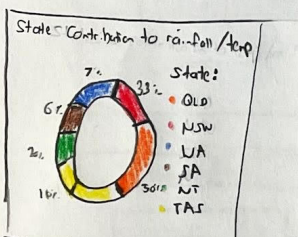 States Contribution to rainfall/temp
7%
33%
State:
QLD
NSW
WA
SA
NT
TAS
6%
30%